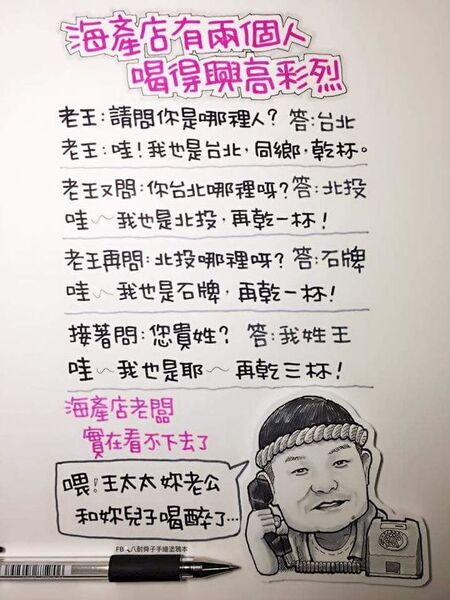 海產店有兩個人
喝得興高彩烈
老王:請問你是哪裡人? 答:台北
老王:哇!我也是台北,同鄉,乾杯。
老王又問:你台北哪裡呀?答:北投
哇~我也是北投,再乾一杯!
老王再問:北投哪裡呀? 答:石牌
哇~我也是石牌,再乾一杯!
接著問:您貴姓? 答:我姓王
哇~我也是耶~再乾三杯!
海產店老闆
實在看不下去了
喂!王太太妳老公
和妳兒子喝醉了…
FB 八耐舜子手繪塗鴉本